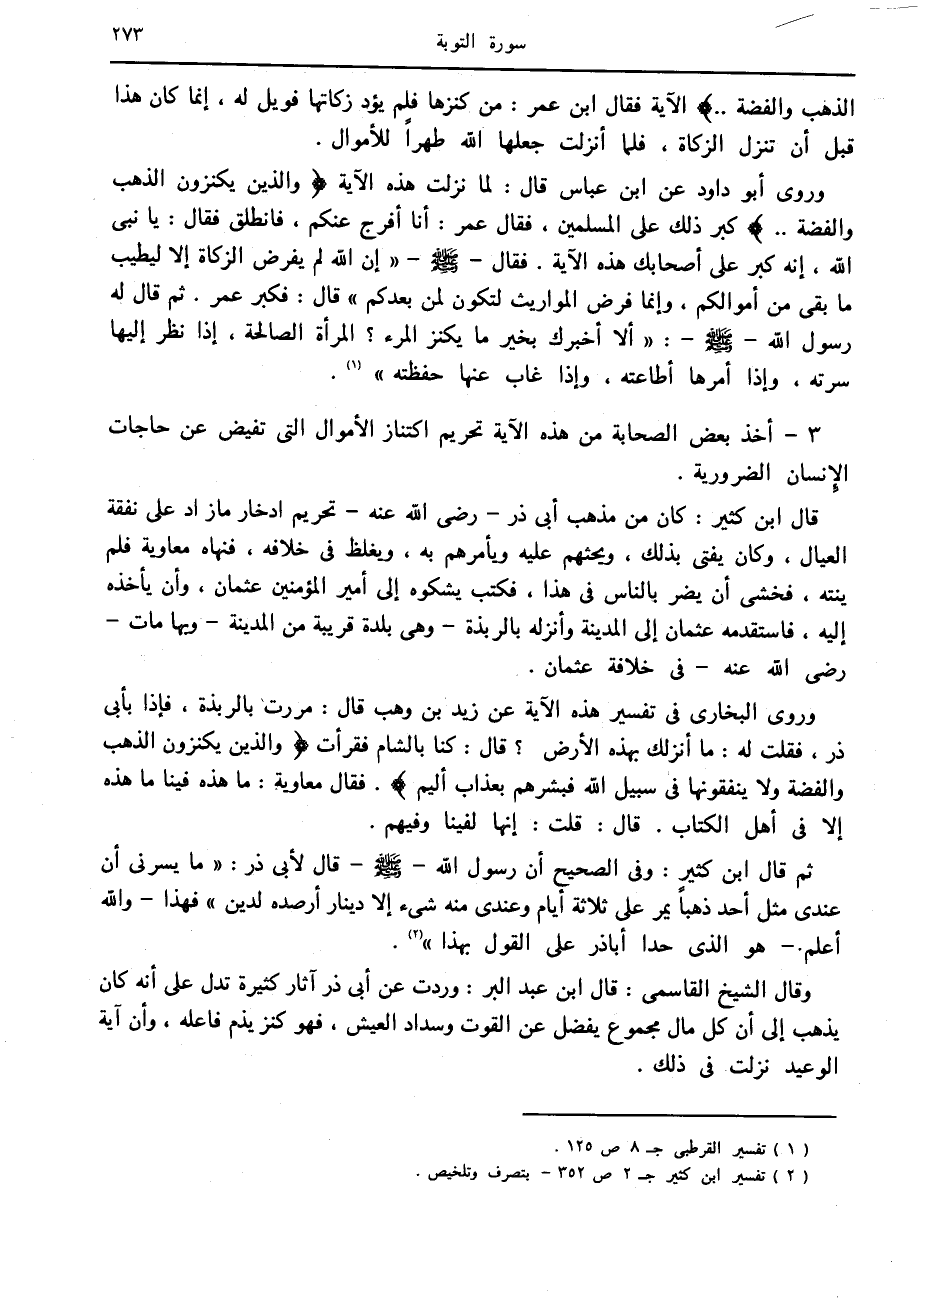 سورة التوبة
٢٧٣
الذهب والفضة ..﴾ الآية فقال ابن عمر : من كنزها فلم يؤد زكاتها فويل له ، إنما كان هذا
قبل أن تنزل الزكاة ، فلما أنزلت جعلها الله طهراً للأموال .
وروى أبو داود عن ابن عباس قال : لما نزلت هذه الآية ﴿ والذين يكنزون الذهب
والفضة .. ﴾ كبر ذلك على المسلمين ، فقال عمر : أنا أفرج عنكم ، فانطلق فقال : يا نبى
الله ، إنه كبر على أصحابك هذه الآية . فقال – ﷺ – « إن الله لم يفرض الزكاة إلا ليطيب
ما بقى من أموالكم ، وإنما فرض المواريث لتكون لمن بعدكم » قال : فكبر عمر . ثم قال له
رسول الله – ﷺ – : « ألا أخبرك بخير ما يكنز المرء ؟ المرأة الصالحة ، إذا نظر إليها
سرته ، وإذا أمرها أطاعته ، وإذا غاب عنها حفظته » (١) .
٣ – أخذ بعض الصحابة من هذه الآية تحريم اكتناز الأموال التى تفيض عن حاجات
الإنسان الضرورية .
قال ابن كثير : كان من مذهب أبى ذر – رضى الله عنه – تحريم ادخار مازاد على نفقة
العيال ، وكان يفتى بذلك ، ويحثهم عليه ويأمرهم به ، ويغلظ فى خلافه ، فنهاه معاوية فلم
ينته ، فخشى أن يضر بالناس فى هذا ، فكتب يشكوه إلى أمير المؤمنين عثمان ، وأن يأخذه
إليه ، فاستقدمه عثمان إلى المدينة وأنزله بالربذة – وهى بلدة قريبة من المدينة – وبها مات –
رضى الله عنه – فى خلافة عثمان .
وروى البخارى فى تفسير هذه الآية عن زيد بن وهب قال : مررت بالربذة ، فإذا بأبى
ذر ، فقلت له : ما أنزلك بهذه الأرض ؟ قال : كنا بالشام فقرأت ﴿ والذين يكنزون الذهب
والفضة ولا ينفقونها فى سبيل الله فبشرهم بعذاب أليم ﴾ . فقال معاوية : ما هذه فينا ما هذه
إلا فى أهل الكتاب . قال : قلت : إنها لفينا وفيهم .
ثم قال ابن كثير : وفى الصحيح أن رسول الله – ﷺ – قال لأبى ذر : « ما يسرنى أن
عندى مثل أحد ذهباً يمر على ثلاثة أيام وعندى منه شىء إلا دينار أرصده لدين » فهذا – والله
أعلم – هو الذى حدا أباذر على القول بهذا »(٢) .
وقال الشيخ القاسمى : قال ابن عبد البر : وردت عن أبى ذر آثار كثيرة تدل على أنه كان
يذهب إلى أن كل مال مجموع يفضل عن القوت وسداد العيش ، فهو كنز يذم فاعله ، وأن آية
الوعيد نزلت فى ذلك .
( ١ ) تفسير القرطبى جـ ٨ ص ١٢٥ .
( ٢ ) تفسير ابن كثير جـ ٢ ص ٣٥٢ – بتصرف وتلخيص .